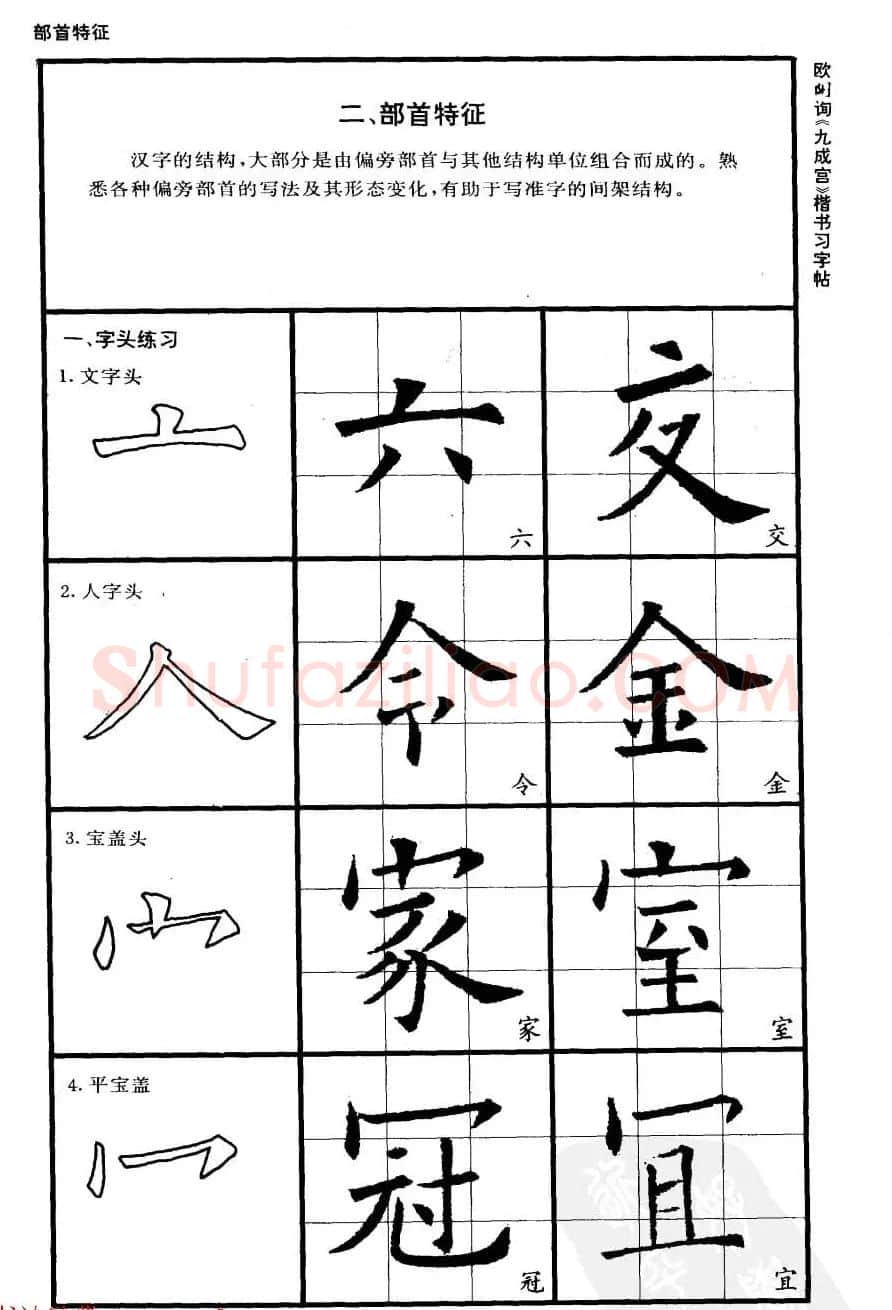 部首特征
二、部首特征
汉字的结构,大部分是由偏旁部首与其他结构单位组合而成的。熟
悉各种偏旁部首的写法及其形态变化,有助于写准字的间架结构。
欧阳询《九成宫》楷书习字帖
一、字头练习
1. 文字头
亠 六 交
六 交
2. 人字头
人 令 金
令 金
Shufaziliao.COM
3. 宝盖头
宀 家 室
家 室
4. 平宝盖
冖 冠 冝
冠 宜